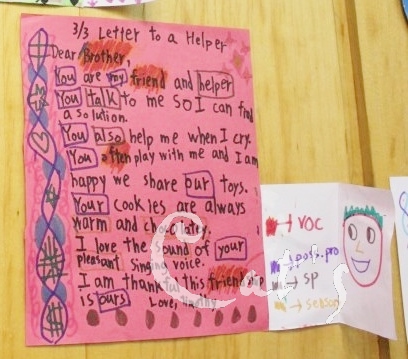 3/3 Letter to a Helper
Dear Brother,
You are my friend and helper
You talk to me so I can find
a solution.
You also help me when I cry.
You often play with me and I am
happy we share our toys.
Your cookies are always
warm and chocolates.
I love the sound of your
pleasant singing voice.
I am thankful this friendship
is ours Love,
→ voc
poss.pro
→ sp
→ sensory
Cat's